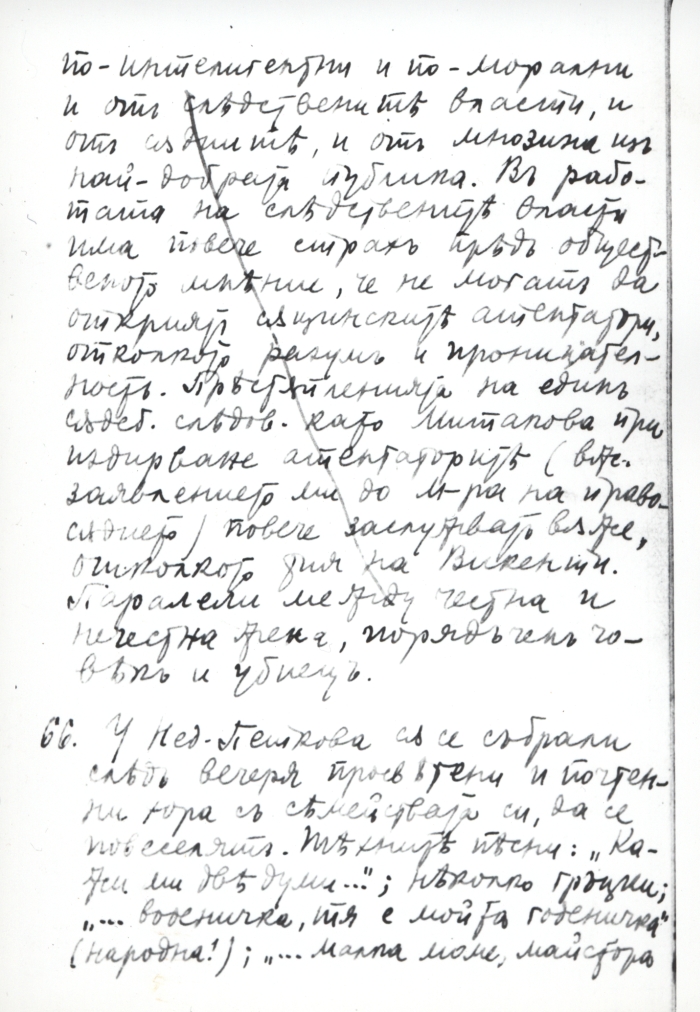 по-интелигентни и по-морални
и отъ слѣдственитѣ власти, и
отъ сѫдиитѣ, и отъ мнозина изъ
най-добрата публика. Въ рабо-
тата на слѣдственитѣ власти
има повече страхъ прѣдъ общест-
веното мнѣние, че не могатъ да
открият сѫщинскитѣ атентатори,
отколкото разумъ и проницател-
ность. Прѣстѫпленията на единъ
сѫдеб. слѣдов. като Митакова при
издирване атентаторитѣ (вж.
заявлението ми до м-ра на право-
сѫдието) повече заслужват вѫже,
отколкото на Викенти.
Паралели между честна и
нечестна жена, порядъченъ чо-
вѣкъ и убиецъ.
66. У Нед. Петкова сѫ се събрали
слѣдъ вечеря просвѣтени и почтен-
ни хора съ сѣмействата си, да се
повеселятъ. Тѣхнитѣ пѣсни: „Ка-
жи ми двѣ думи..."; нѣколко гръцки;
„... воденичка, тя е мойта годеничка"
(народна!); „... малка моме, майстора